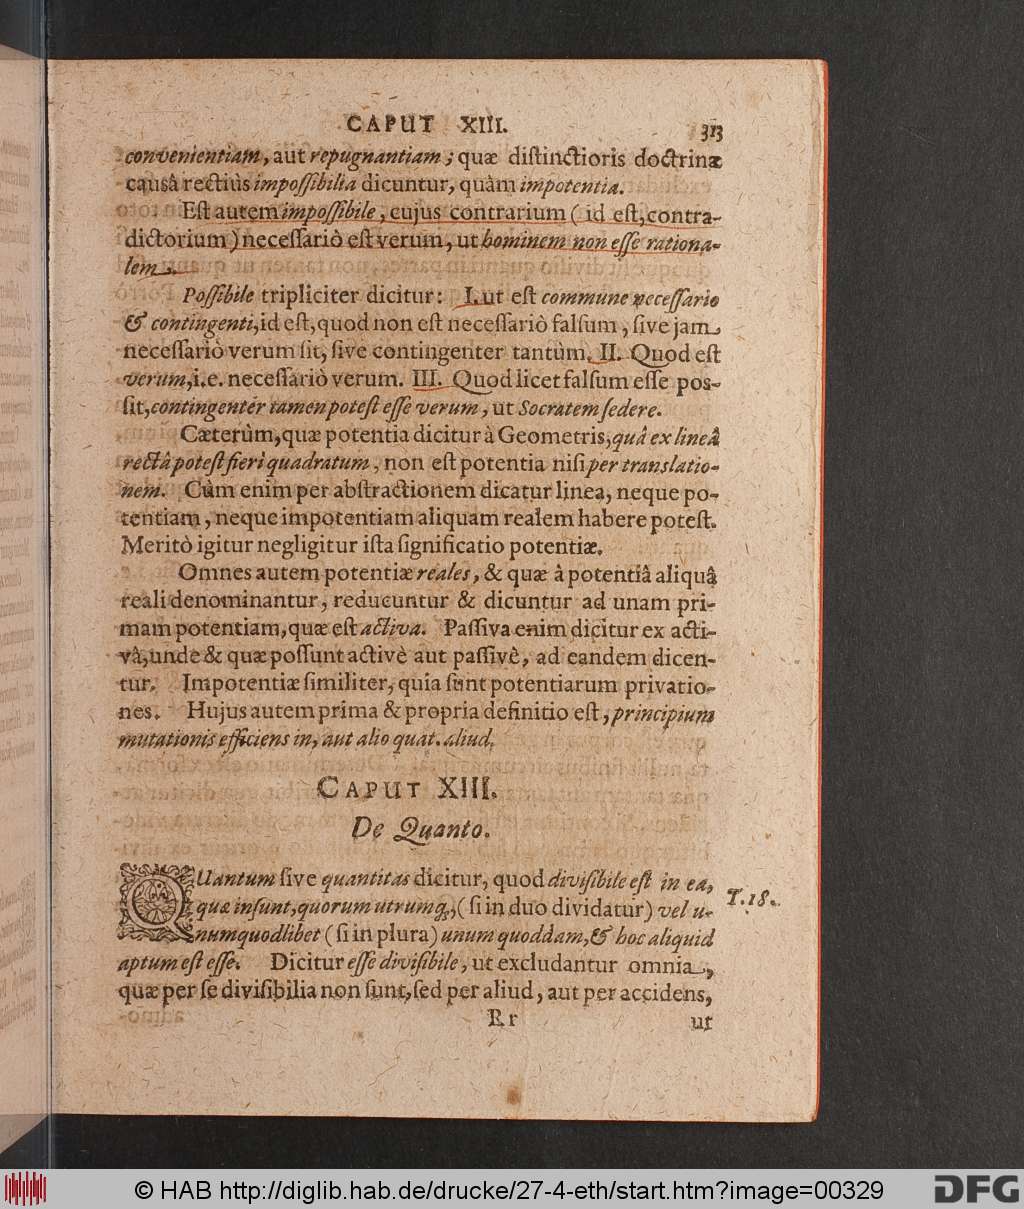 CAPUT XIII. 313
convenientiam, aut repugnantiam; quæ diſtinctioris doctrinæ
causâ rectiùs impoſſibilia dicuntur, quàm impotentia.
Eſt autem impoſſibile, cujus contrarium (id eſt, contra-
dictorium) neceſſariò eſt verum, ut hominem non eſſe rationa-
lem.
Poſſibile tripliciter dicitur: I. ut eſt commune neceſſario
& contingenti, id eſt, quod non eſt neceſſariò falſum, ſive jam
neceſſariò verum ſit, ſive contingenter tantùm. II. Quod eſt
verum, i.e. neceſſariò verum. III. Quod licet falſum eſſe poſ-
ſit, contingentèr tamen poteſt eſſe verum, ut Socratem ſedere.
Cæterùm, quæ potentia dicitur à Geometris, quâ ex lineâ
rectâ poteſt fieri quadratum, non eſt potentia niſi per translatio-
nem. Cùm enim per abſtractionem dicatur linea, neque po-
tentiam, neque impotentiam aliquam realem habere poteſt.
Meritò igitur negligitur iſta ſignificatio potentiæ.
Omnes autem potentiæ reales, & quæ à potentiâ aliquâ
reali denominantur, reducuntur & dicuntur ad unam pri-
mam potentiam, quæ eſt activa. Paſſiva enim dicitur ex acti-
vâ, unde & quæ poſſunt activè aut paſſivè, ad eandem dicen-
tur. Impotentiæ ſimiliter, quia ſunt potentiarum privatio-
nes. Hujus autem prima & propria definitio eſt, principium
mutationis efficiens in, aut alio quat. aliud.
CAPUT XIII.
De Quanto.
QUantum ſive quantitas dicitur, quod diviſibile eſt in ea,
quæ inſunt, quorum utrumq; (ſi in duo dividatur) vel u-
numquodlibet (ſi in plura) unum quoddam, & hoc aliquid
aptum eſt eſſe. Dicitur eſſe diviſibile, ut excludantur omnia,
quæ per ſe diviſibilia non ſunt, ſed per aliud, aut per accidens,
Rr ut
T. 18.
© HAB http://diglib.hab.de/drucke/27-4-eth/start.htm?image=00329
DFG